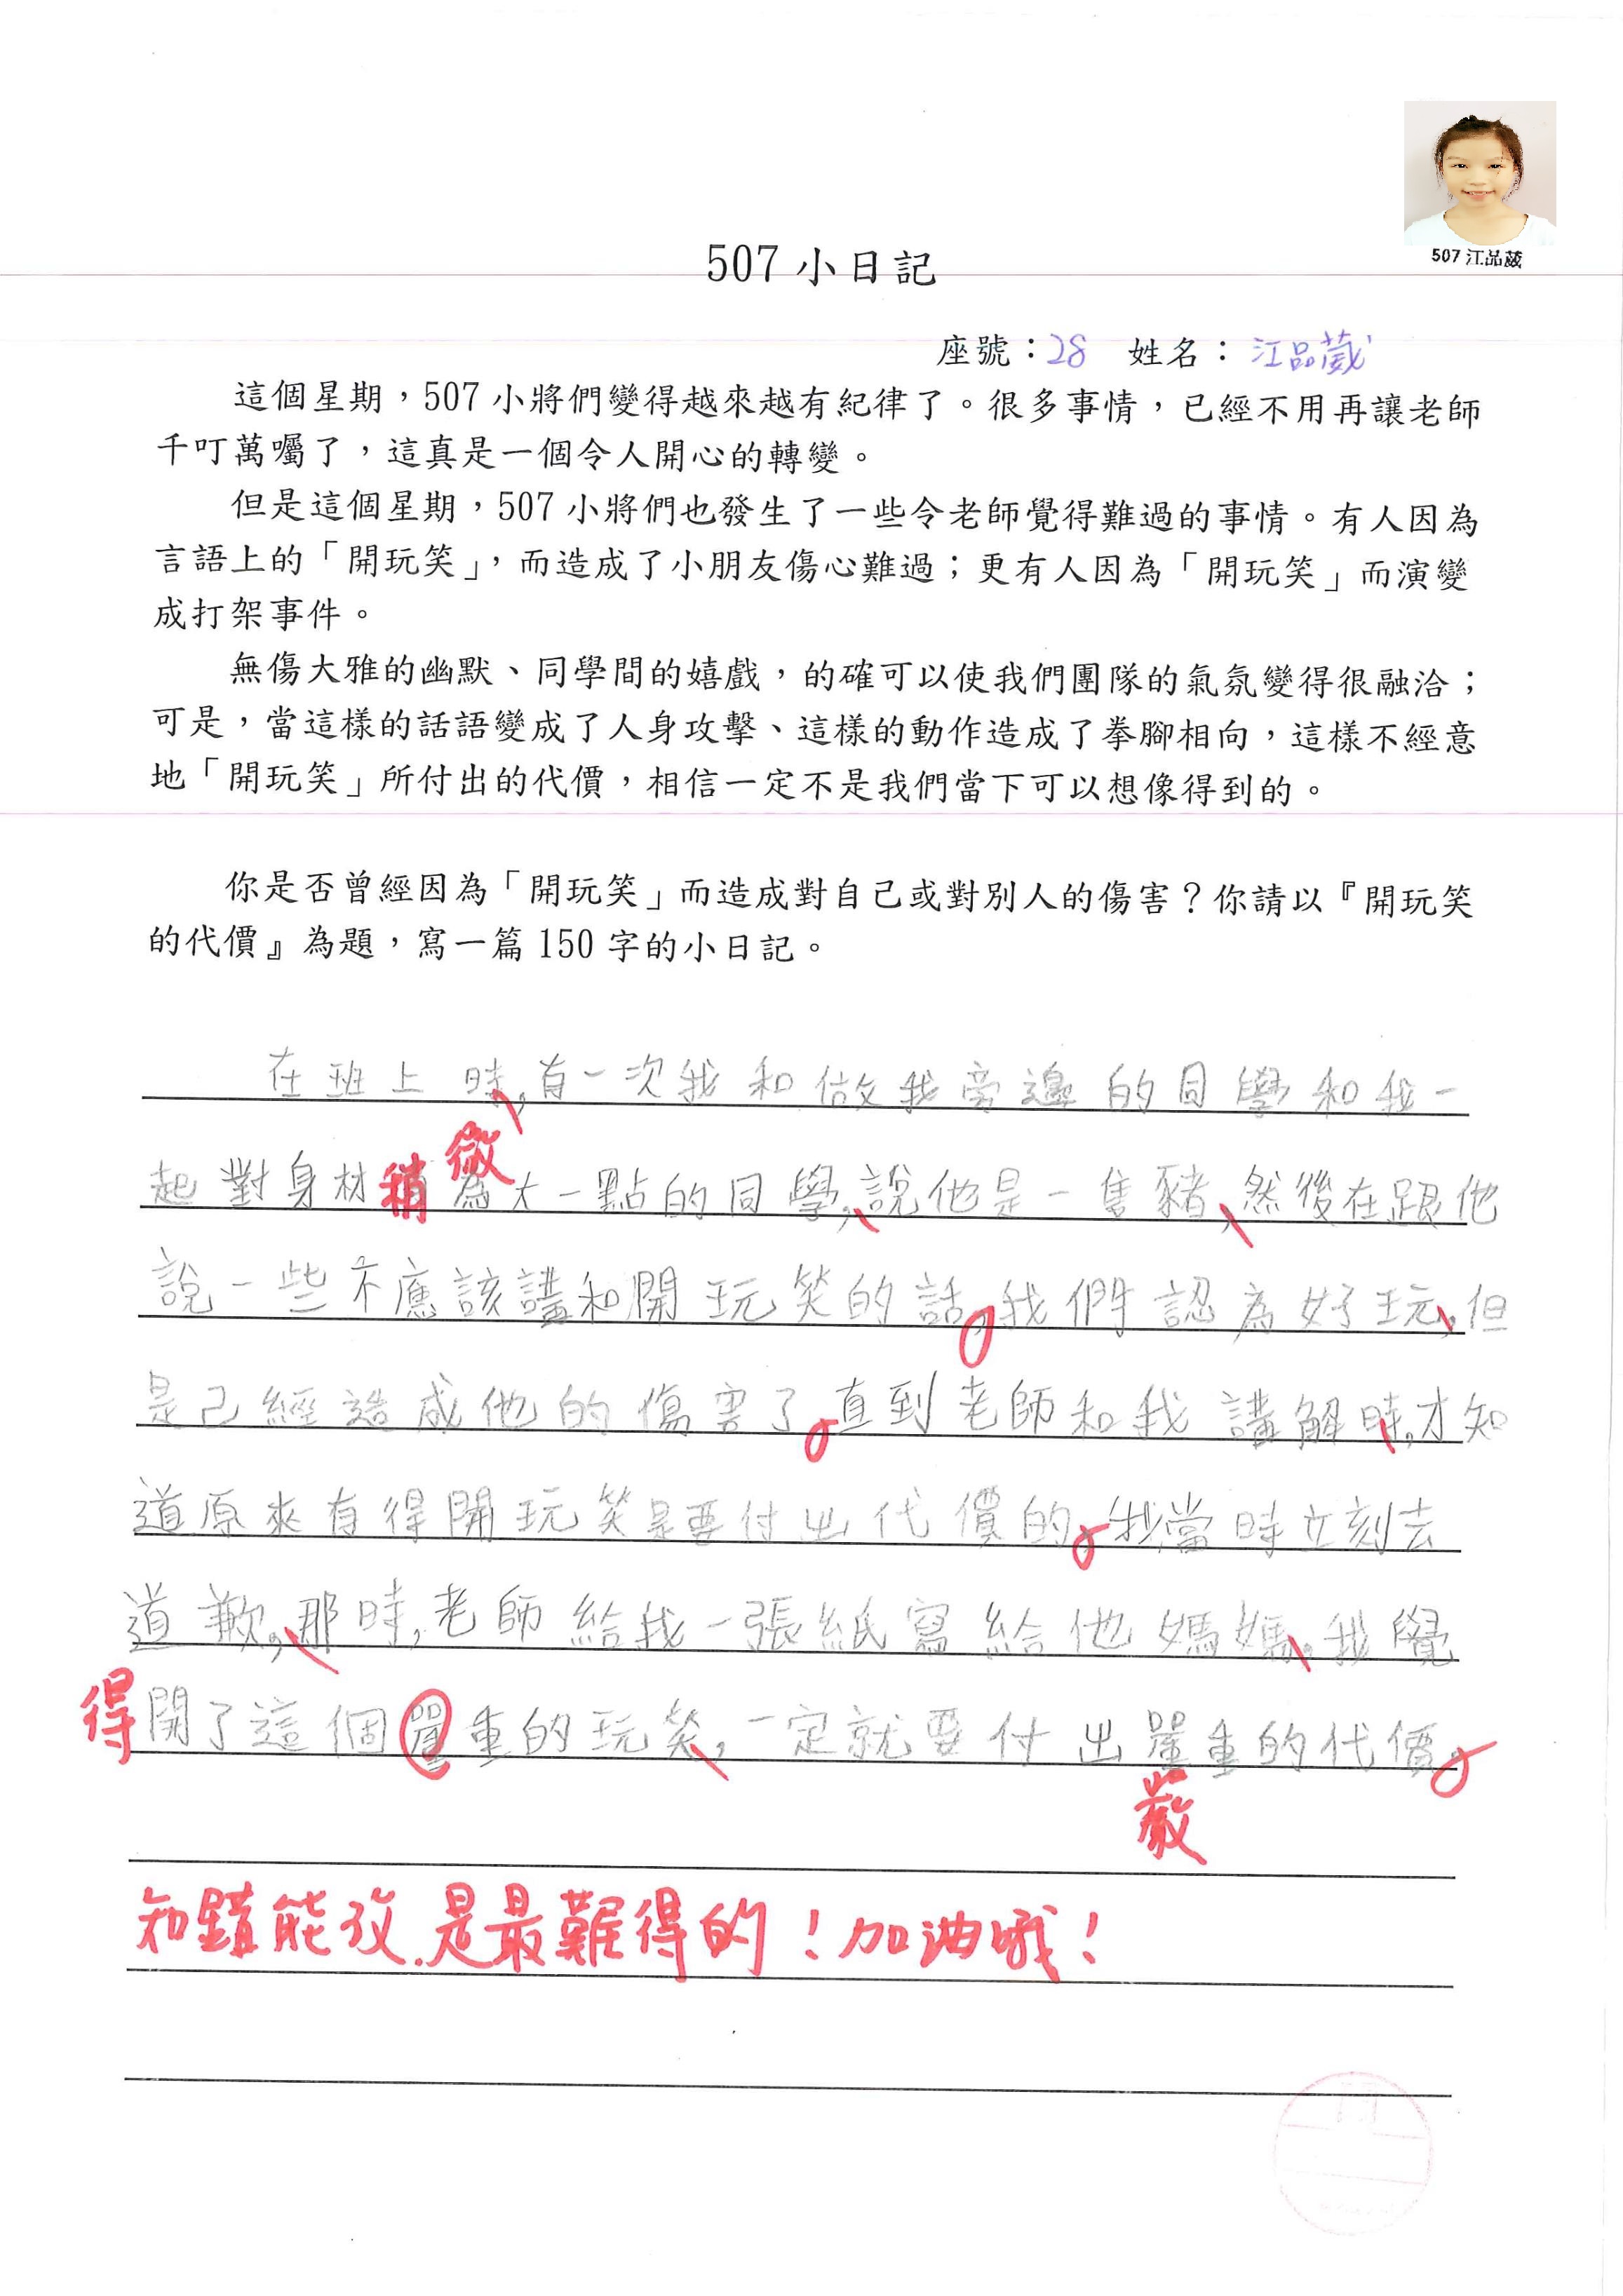 507 江品葳
507 小日記
座號：28 姓名：江品葳
這個星期，507 小將們變得越來越有紀律了。很多事情，已經不用再讓老師
千叮萬囑了，這真是一個令人開心的轉變。
但是這個星期，507 小將們也發生了一些令老師覺得難過的事情。有人因為
言語上的「開玩笑」，而造成了小朋友傷心難過；更有人因為「開玩笑」而演變
成打架事件。
無傷大雅的幽默、同學間的嬉戲，的確可以使我們團隊的氣氛變得很融洽；
可是，當這樣的話語變成了人身攻擊、這樣的動作造成了拳腳相向，這樣不經意
地「開玩笑」所付出的代價，相信一定不是我們當下可以想像得到的。
你是否曾經因為「開玩笑」而造成對自己或對別人的傷害？你請以『開玩笑
的代價』為題，寫一篇 150 字的小日記。
在班上時，有一次我和做我旁邊的同學和我一
微
起對身材稍為大一點的同學，說他是一隻豬，然後在跟他
說一些不應該講和開玩笑的話。我們認為好玩，但
是己經造成他的傷害了。直到老師和我講解時，才知
道原來有得開玩笑是要付出代價的。我當時立刻去
道歉，那時，老師給我一張紙寫給他媽媽，我覺
得開了這個嚴重的玩笑，一定就要付出嚴重的代價。
嚴
知錯能改，是最難得的！加油哦！